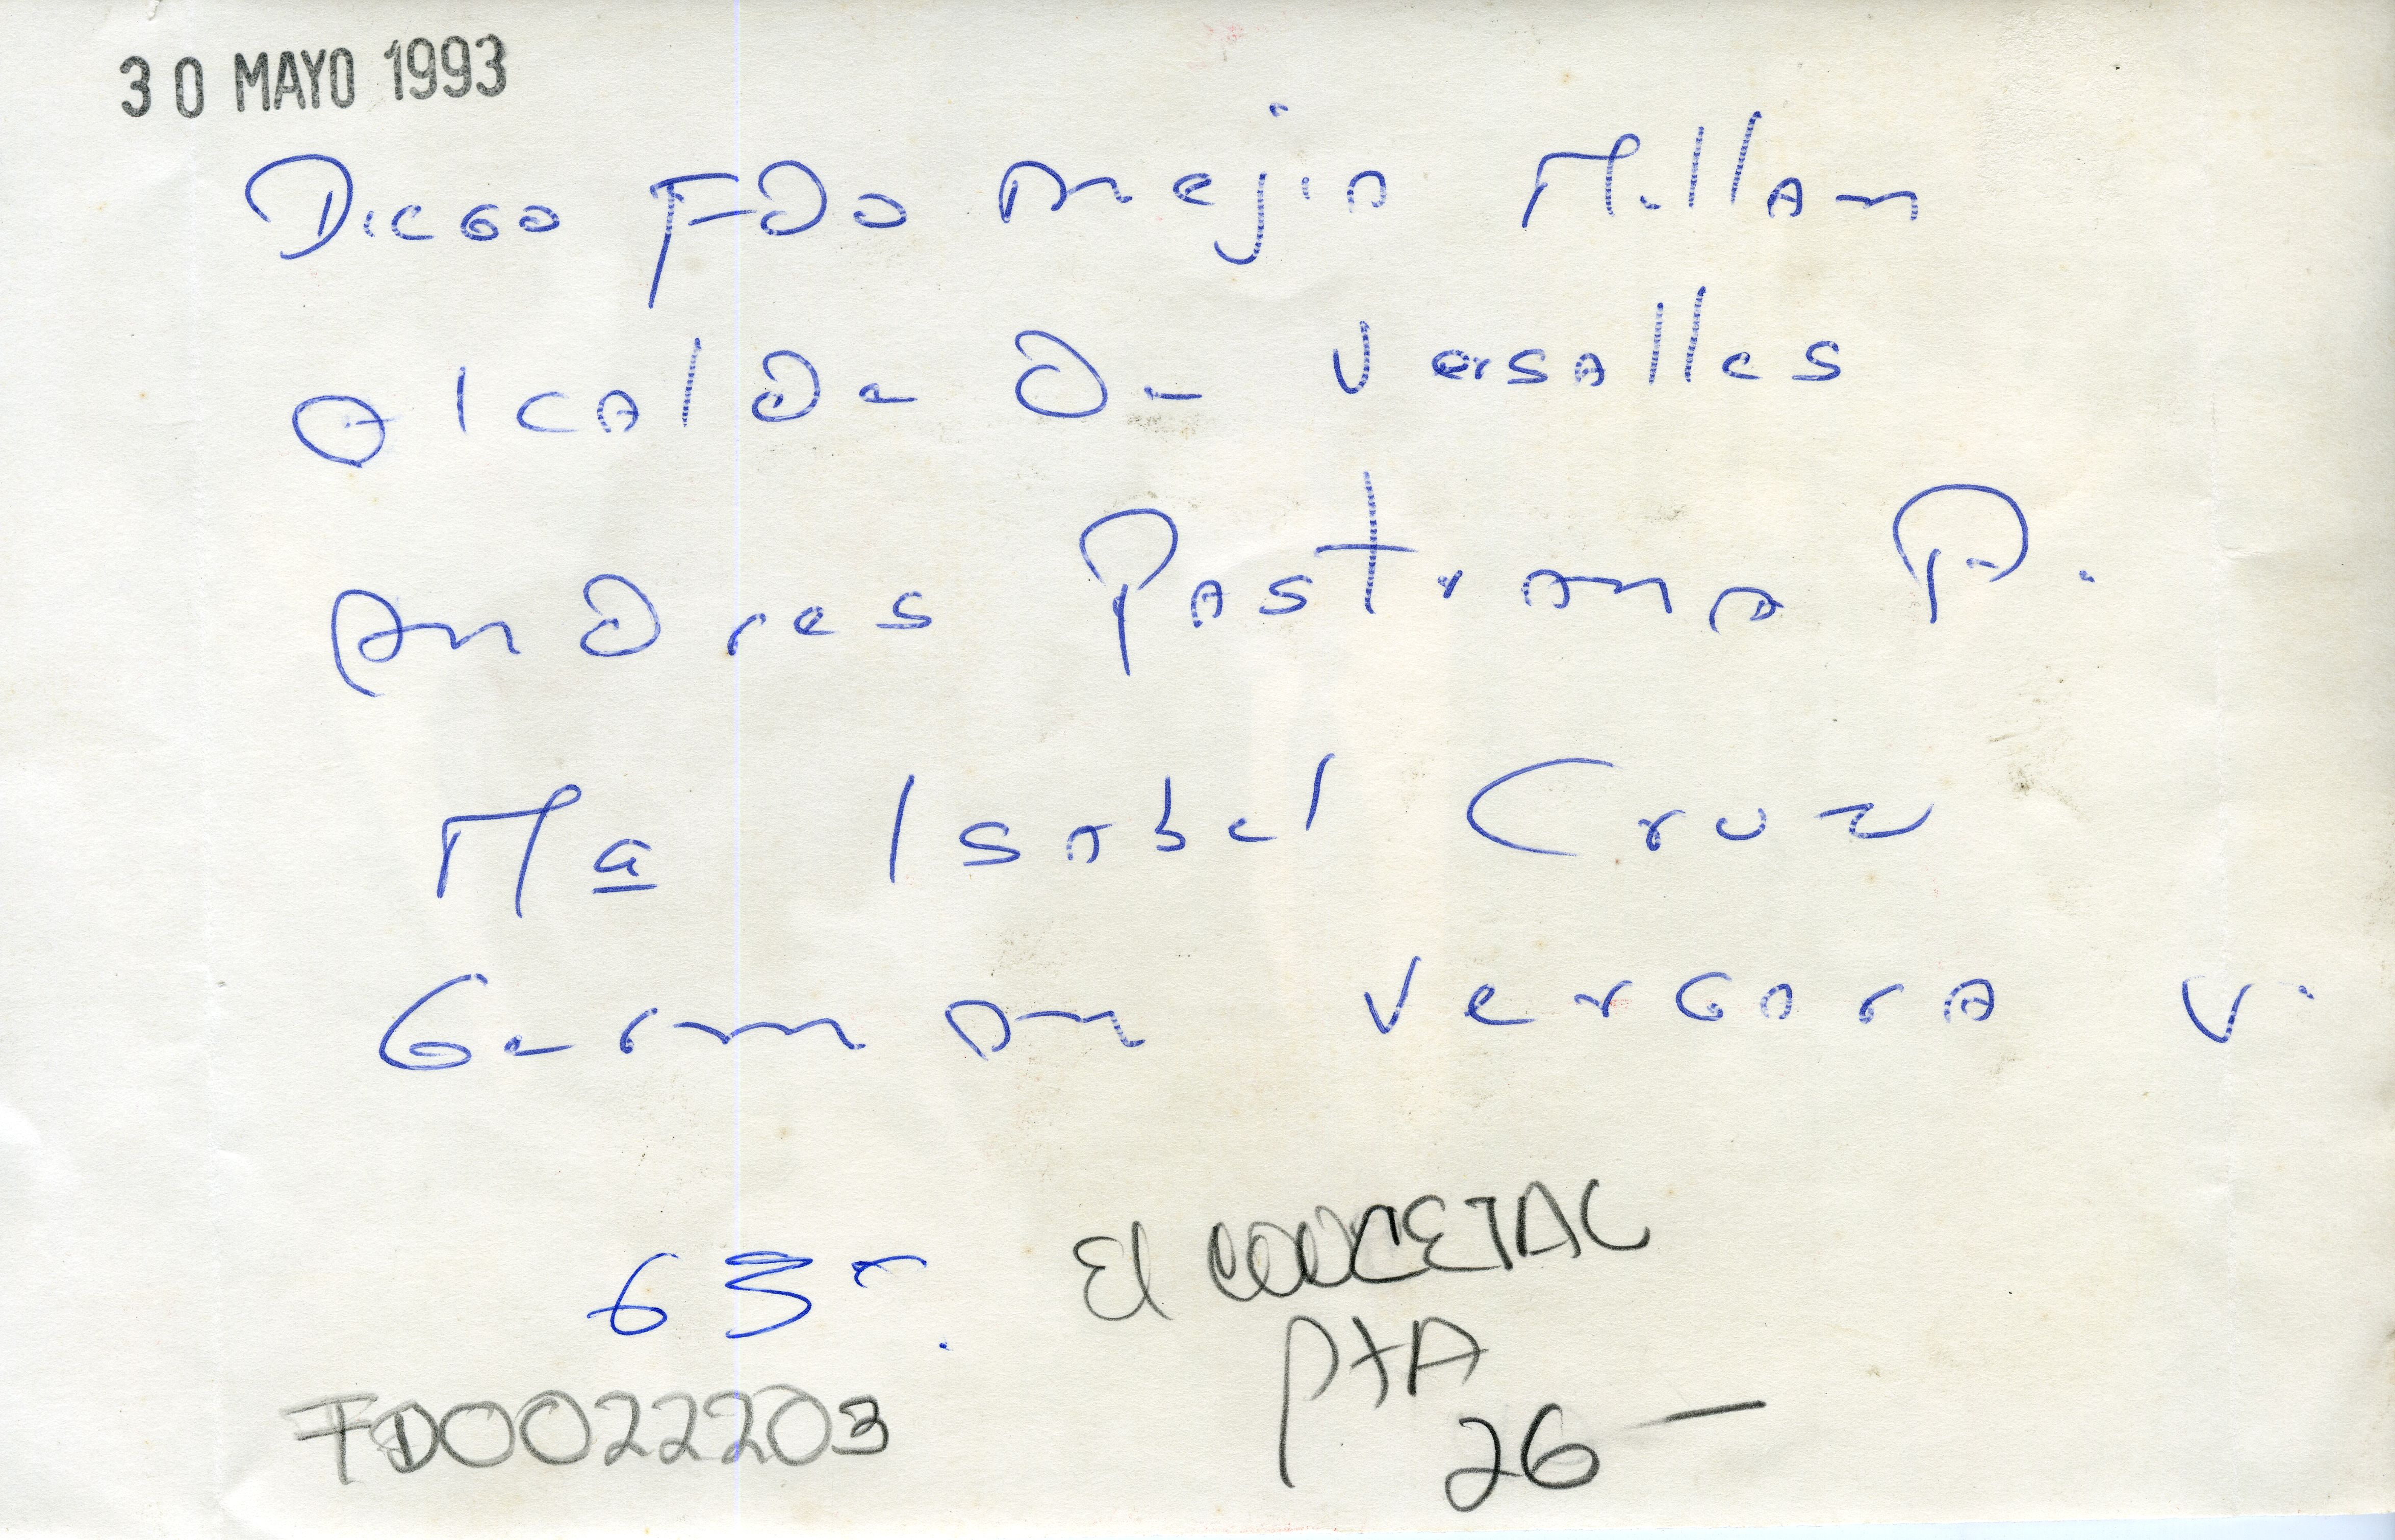 30 MAYO 1993
Diego FDO Mejia Millan
Alcalde De Versalles
Andres Pastrana P.
Mª Isabel Cruz
German Vergara V.
63%
El
PtA
26 —
FD0022203